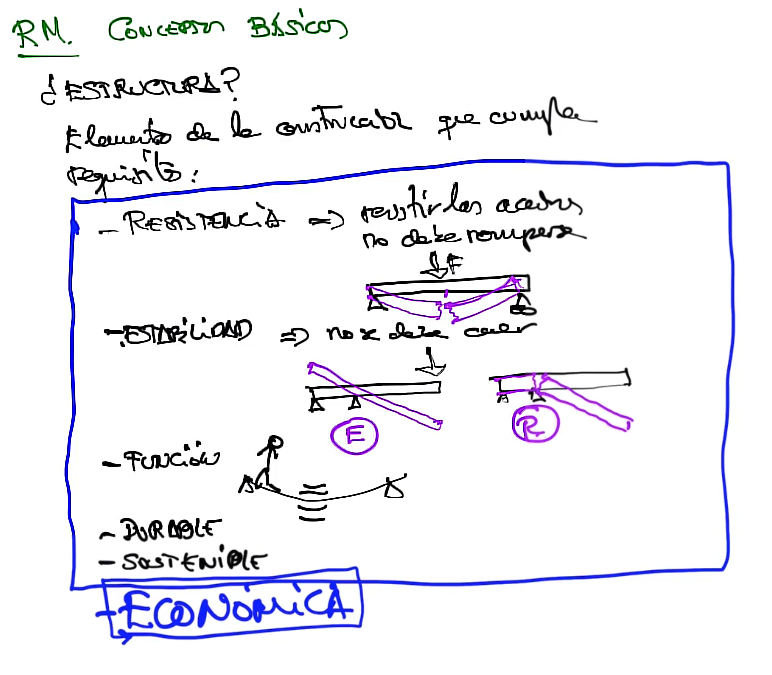 RM. CONCEPTOS BÁSICOS
¿ESTRUCTURA?
Elemento de la construcción que cumpla
requisitos:
- RESISTENCIA => resistir las acciones
no debe romperse
F
- ESTABILIDAD => no se debe caer
E
R
- FUNCIÓN
- DURABLE
- SOSTENIBLE
- ECONÓMICA